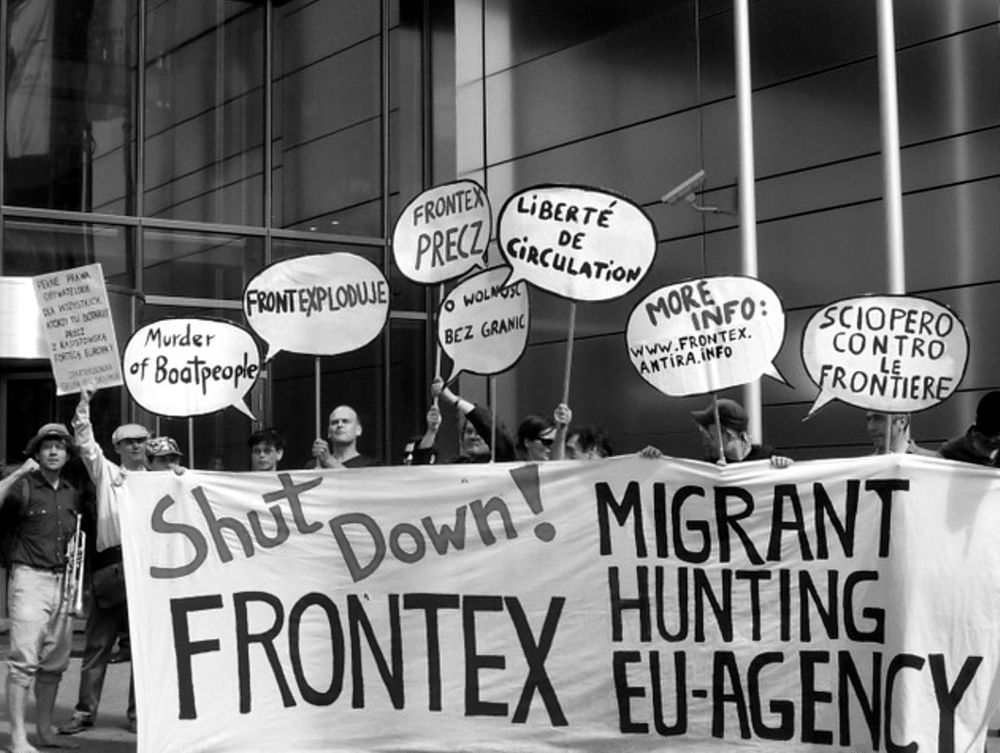 PEŁNE PRAWA
OBYWATELSKIE
DLA WSZYSTKICH,
KTÓRZY TU DOTARLI!
PRECZ
Z RASISTOWSKĄ
FORTECĄ EUROPA!
Murder
of Boatpeople
FRONTEXPLODUJE
FRONTEX
PRECZ
O WOLNOŚĆ
BEZ GRANIC
LiBERTÉ
DE
CiRCULATiON
MORE
INFO:
WWW.FRONTEX.
ANTIRA.INFO
SCIOPERO
CONTRO
LE
FRONTIERE
Shut
Down!
FRONTEX
MIGRANT
HUNTING
EU-AGENCY